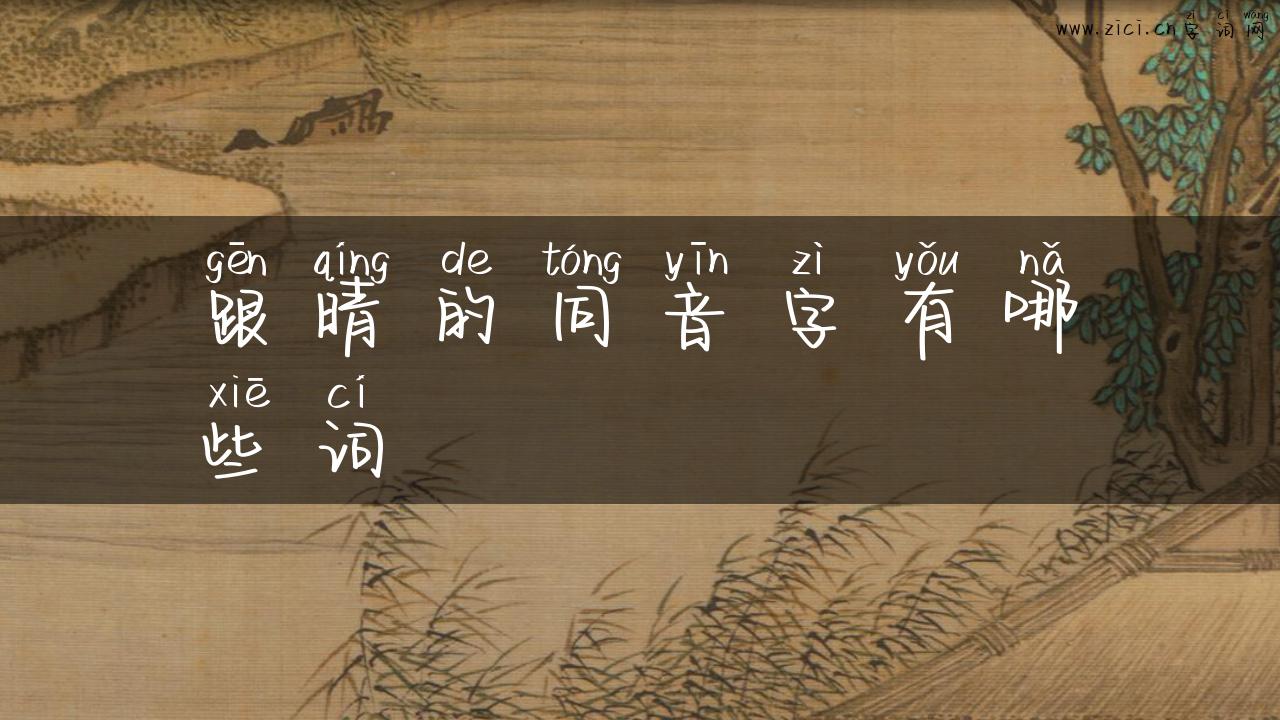 zì cí wǎng
www.zici.cn字词网
gēn qíng de tóng yīn zì yǒu nǎ
跟晴的同音字有哪
xiē cí
些词